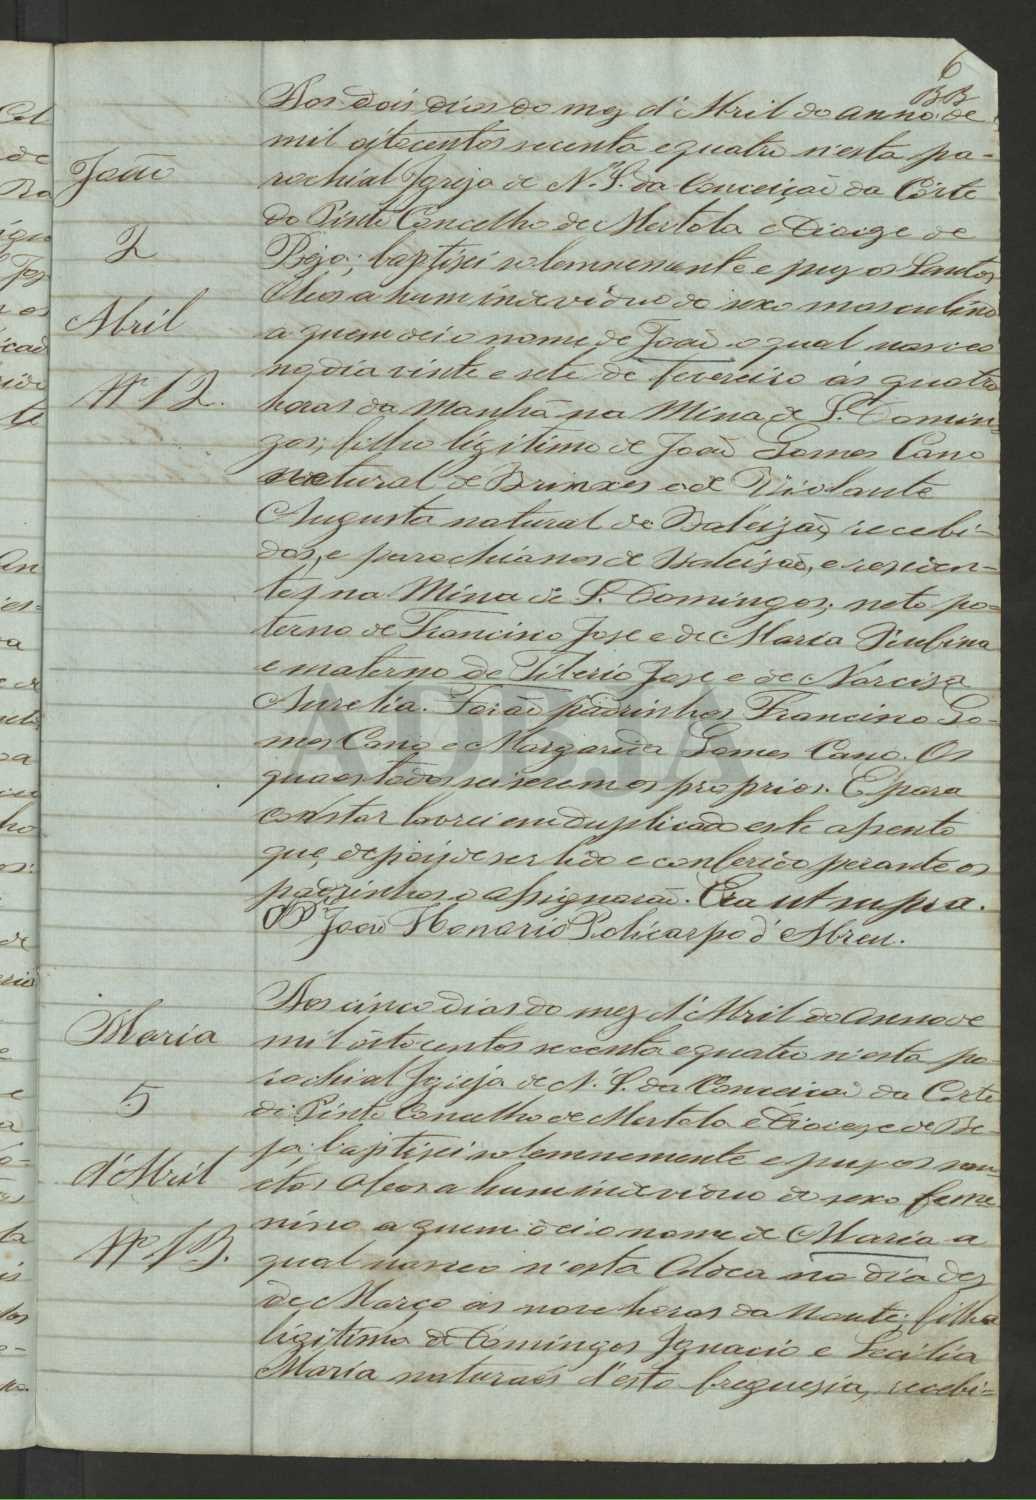 6
BB
Aos dois dias do mez d'Abril do anno de
mil oitocentos secenta e quatro n'esta pa-
rochial Igreja de N. S. da Conceição da Côrte
João
do Pinto Concelho de Mertola e Dioceze de
2
Beja; baptizei solemnemente e puz os Santos
Oleos a hum individuo do sexo masculino
Abril
a quem dei o nome de João o qual nasceo
no dia vinte e sete de fevereiro ás quatro
Nº 12.
horas da manhã na Mina de S. Domin-
gos; filho ligitimo de João Gomes Cano
natural de Brinxes e de Violante
Augusta natural de Baleizão, recebi-
dos, e parochianos de Baleizão, e residen-
tes na Mina de S. Domingos; neto pa-
terno de Francisco José e de Maria
e materno de José e de Narciza
Aurelia. Forão padrinhos Francisco Go-
mes Cano e Margarida Gomes Cano. Os
quaes todos sei serem os proprios. E para
constar lavrei em duplicado este assento
que, depois de ser lido e conferido perante os
padrinhos o assignarão. Era ut supra.
O P. João Honorio Policarpo d'Abreu.
Aos cinco dias do mez d'Abril do anno de
Maria
mil oitocentos secenta e quatro n'esta pa-
rochial Igreja de N. S. da Conceicão da Corte
5
do Pinto Concelho de Mertola e Dioceze de Be-
ja; baptizei solemnemente e puz os san-
d'Abril
ctos Oleos a hum individuo do sexo feme
nino a quem dei o nome de Maria a
Nº 13.
qual nasceo n'esta Aldea no dia dez
de Março ás nove horas da noute; filha
ligitima de Domingos Ignacio e Cecilia
Maria naturaes d'esta freguezia, recebi-
ADBJA